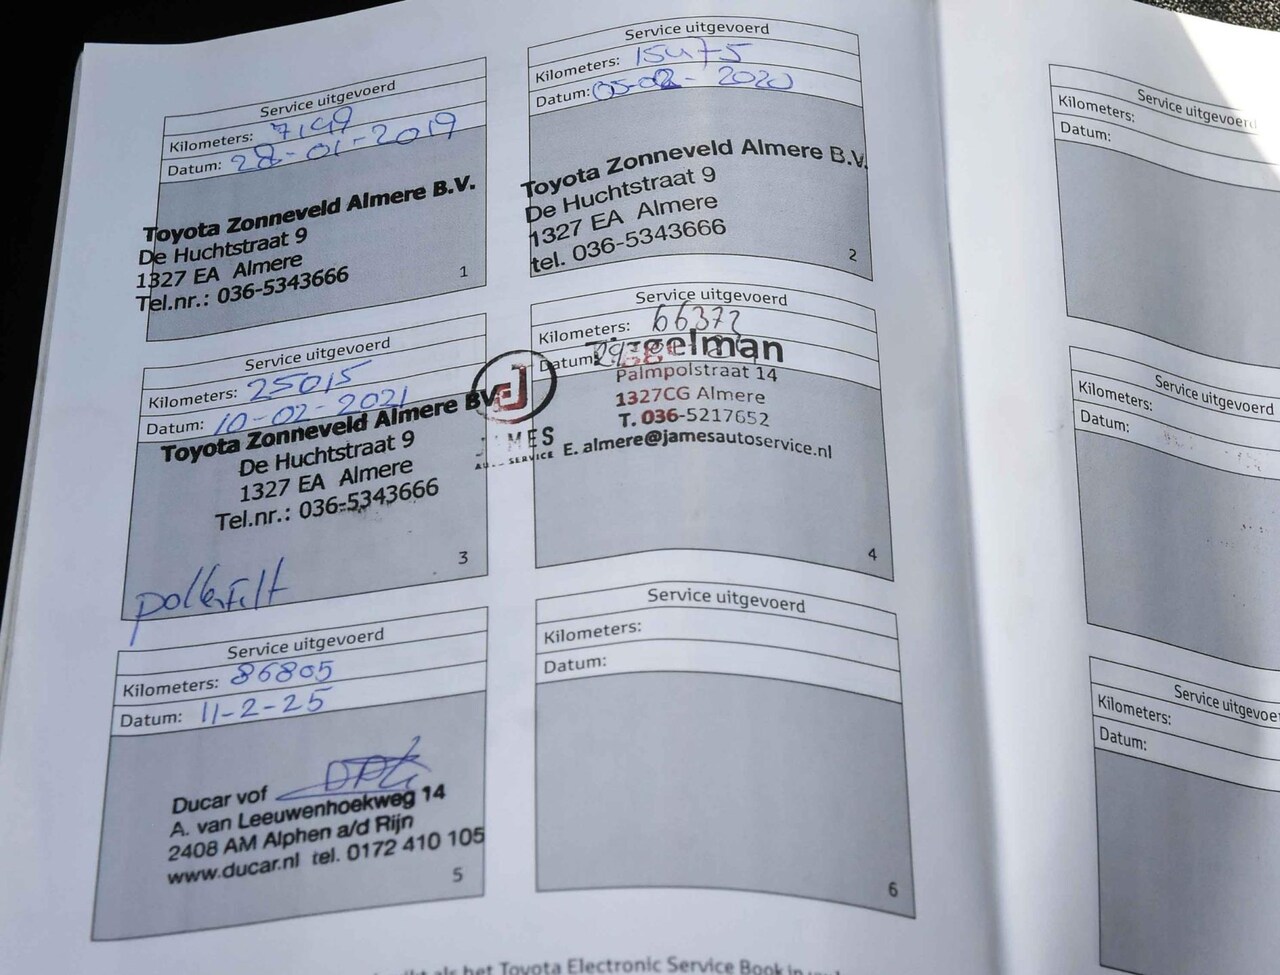 Service uitgevoerd
Kilometers: 7199
Datum: 28-01-2019
Toyota Zonneveld Almere B.V.
De Huchtstraat 9
1327 EA Almere
Tel.nr.: 036-5343666
1
Service uitgevoerd
Kilometers: 15475
Datum: 05-02-2020
Toyota Zonneveld Almere B.V.
De Huchtstraat 9
1327 EA Almere
tel. 036-5343666
2
Service uitgevoerd
Kilometers: 25015
Datum: 10-02-2021
Toyota Zonneveld Almere BV
De Huchtstraat 9
1327 EA Almere
Tel.nr.: 036-5343666
pollenfilt
3
Service uitgevoerd
Kilometers: 66372
Datum:
Palmpolstraat 14
1327CG Almere
T. 036-5217652
E. almere@jamesautoservice.nl
SERVICE
4
Service uitgevoerd
Kilometers: 86805
Datum: 11-2-25
Ducar vof
A. van Leeuwenhoekweg 14
2408 AM Alphen a/d Rijn
www.ducar.nl tel. 0172 410 105
5
Service uitgevoerd
Kilometers:
Datum:
6
Service uitgevoerd
Kilometers:
Datum:
Service uitgevoerd
Kilometers:
Datum:
Service uitgevoe
Kilometers:
Datum:
als het Toyota Electronic Service Book in